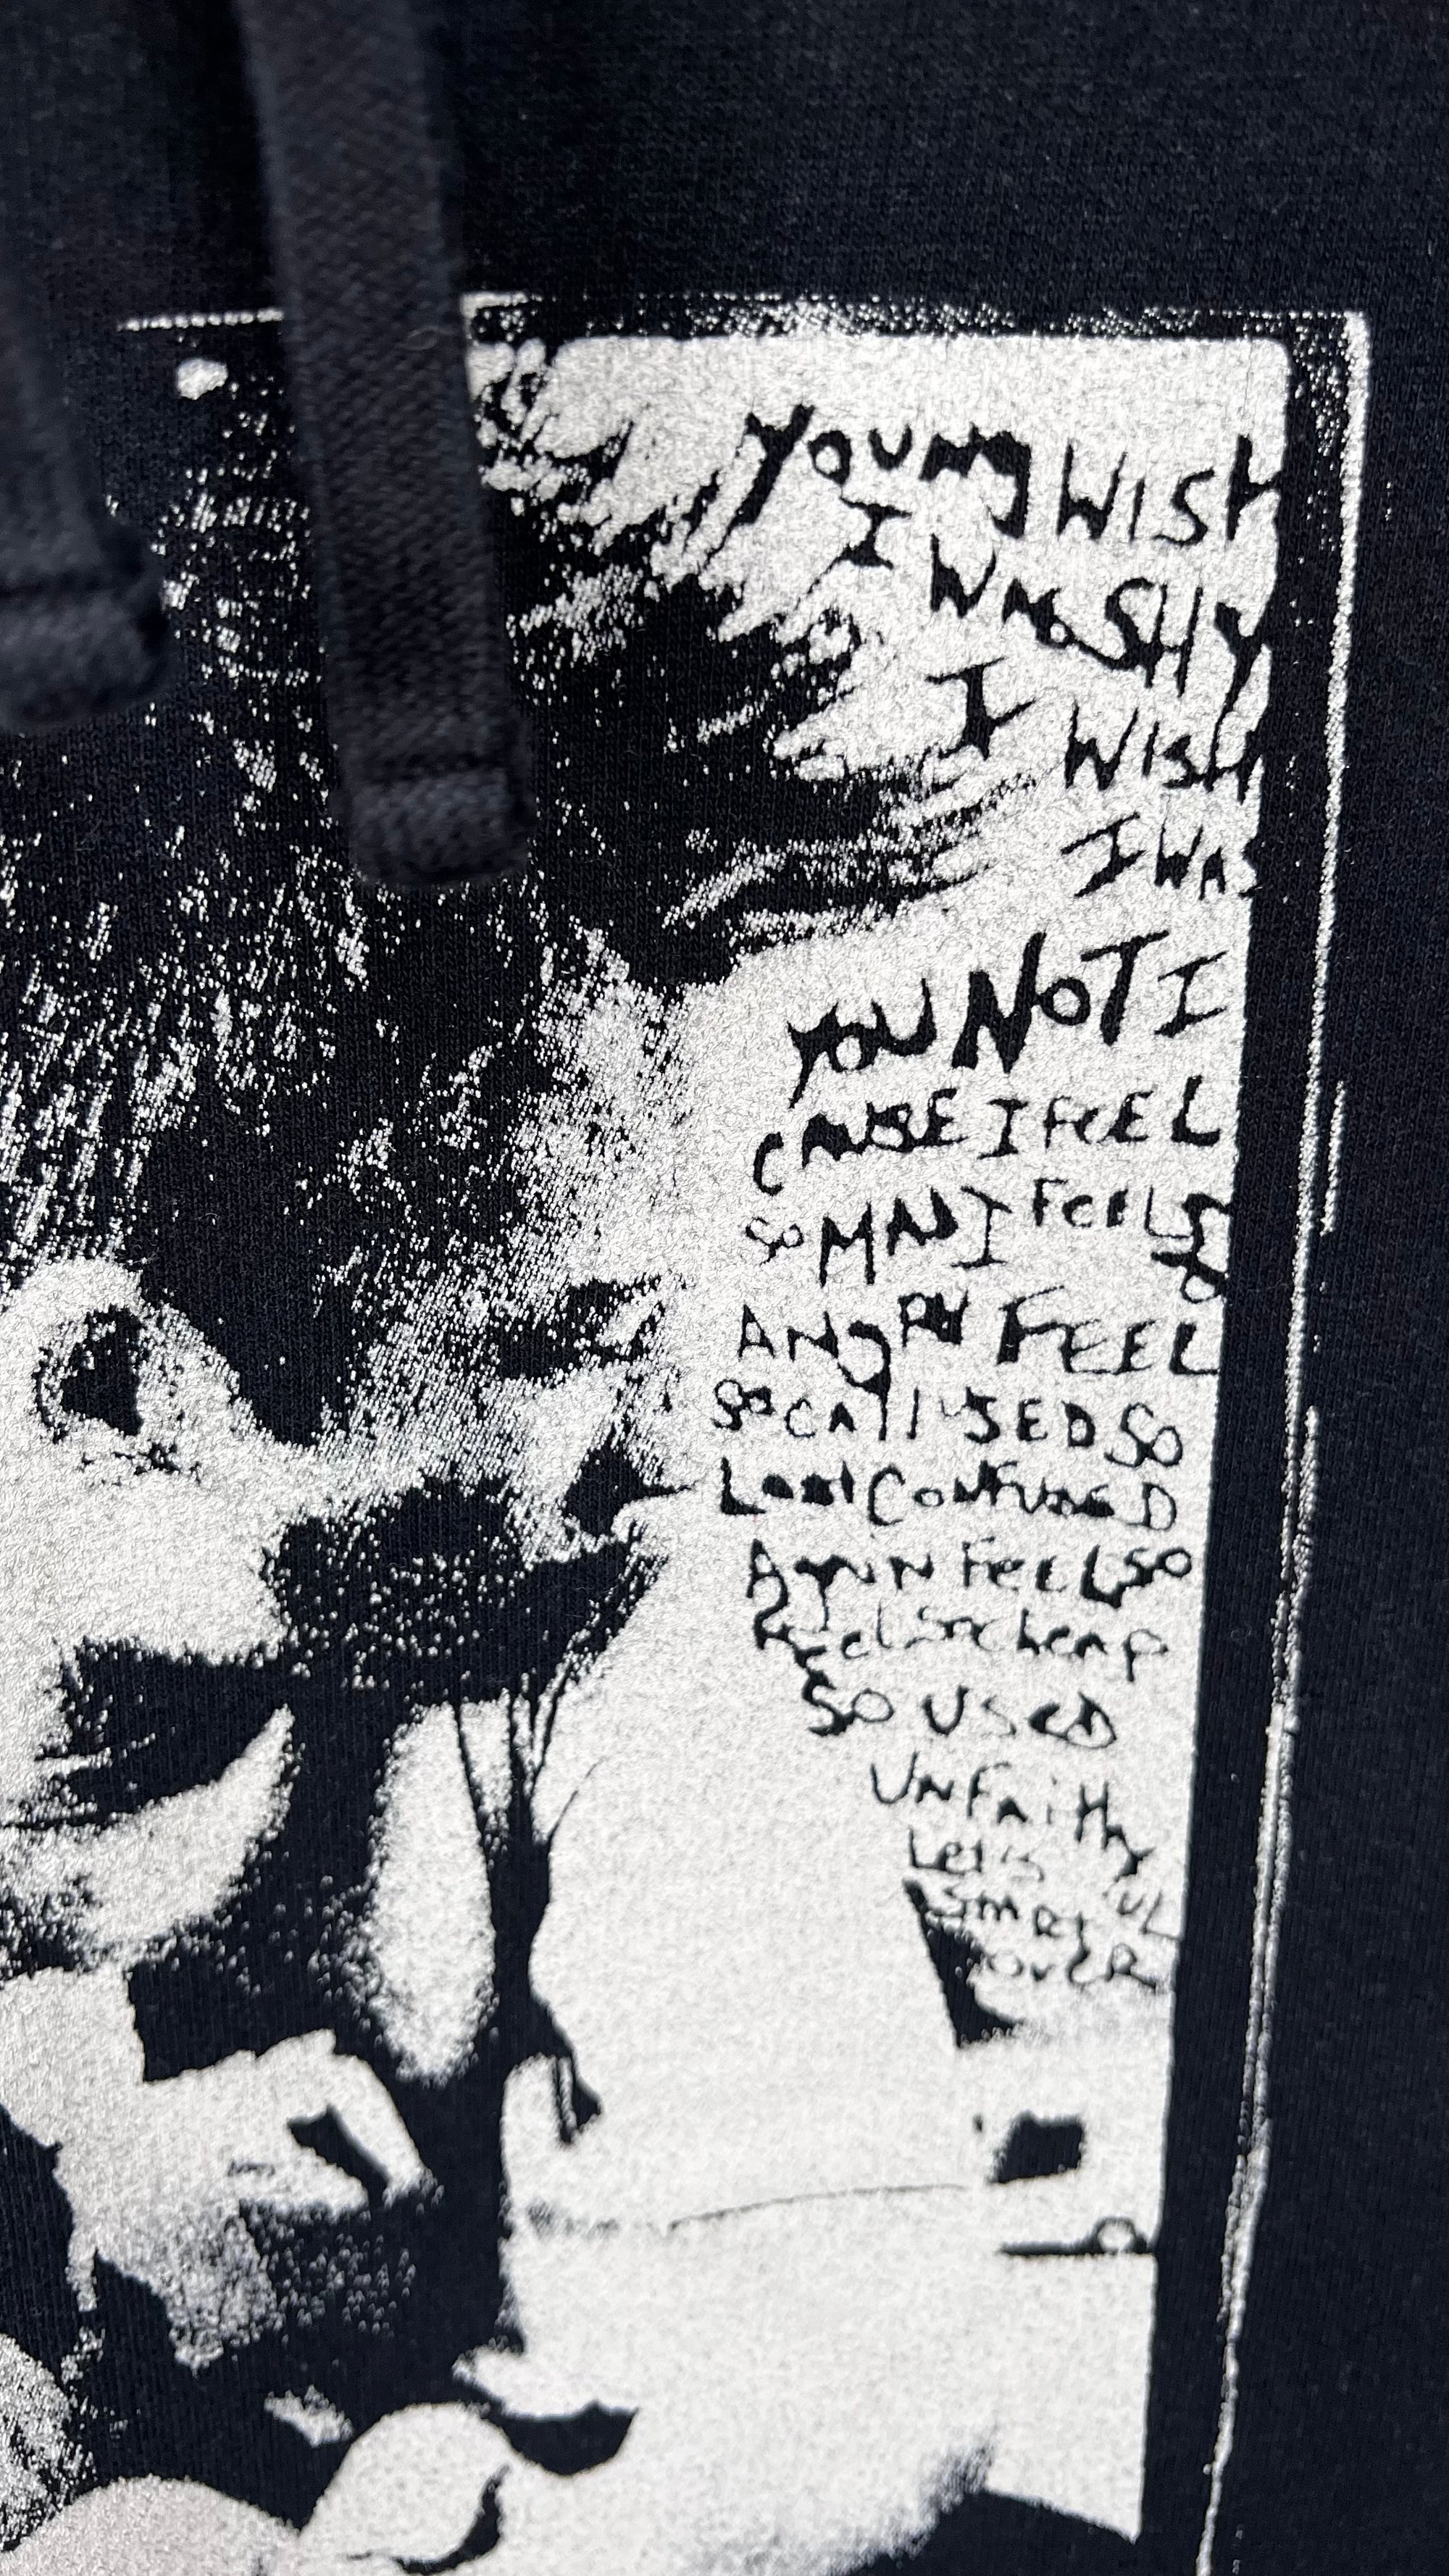 YOUNG WISH
I WAS SHY
I WISH
I WAS
YOU NOT I
CAUSE I FEEL
SO MAD I FeEL SO
ANGRY FEEL
SO CALLUSED SO
Lost CONFUSED
AgAIN FeeL SO
Feel So cheap
SO USED
UNFAITHFUL
Let's
START
OVER